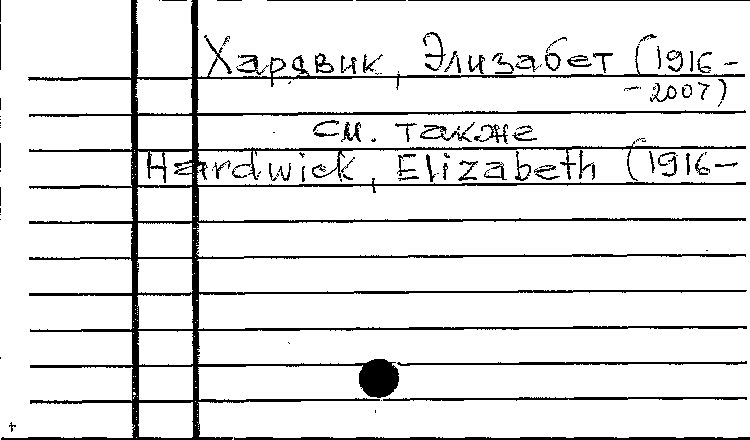 Хардвик, Элизабет (1916-
-2007)
см. также
Hardwick, Elizabeth (1916-